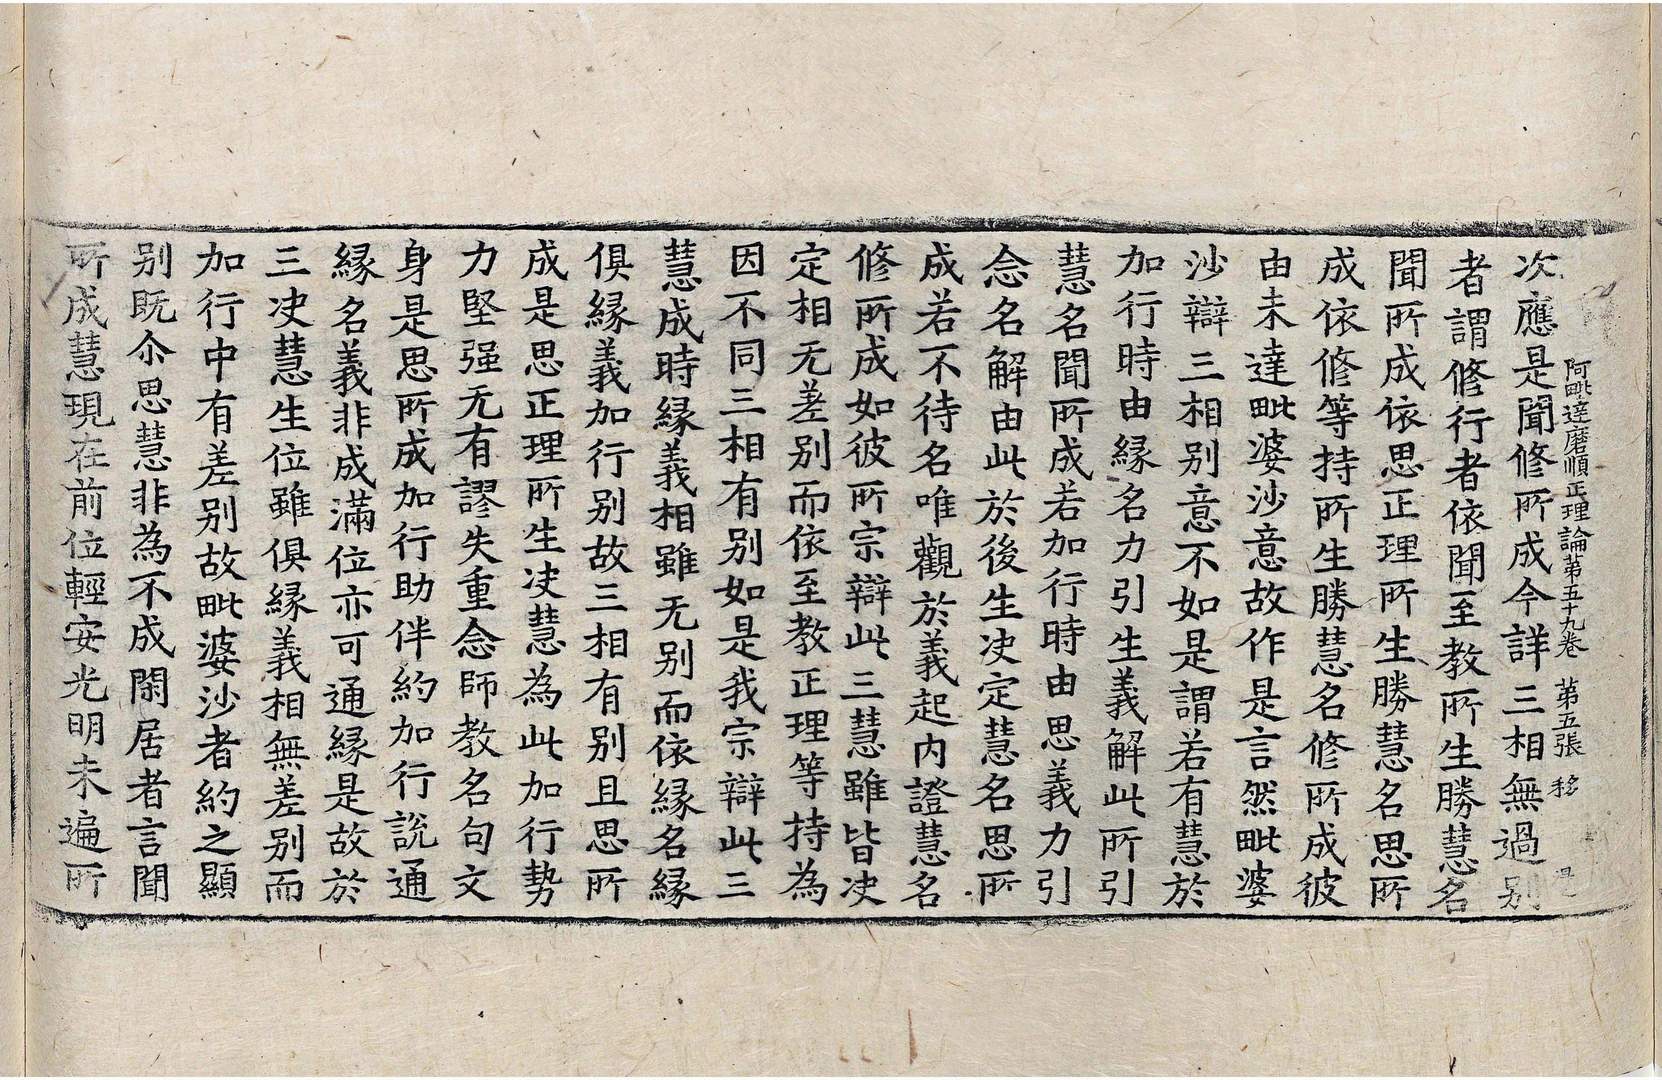 阿毗達磨順正理論苐五十九卷 第五張 移
次應是聞修所成今詳三相無過别
者謂修行者依聞至教所生勝慧名
聞所成依思正理所生勝慧名思所
成依修等持所生勝慧名修所成彼
由未達毗婆沙意故作是言然毗婆
沙辯三相别意不如是謂若有慧於
加行時由緣名力引生義解此所引
慧名聞所成若加行時由思義力引
念名解由此於後生决定慧名思所
成若不待名唯觀於義起内證慧名
修所成如彼所宗辯此三慧雖皆决
定相无差别而依至教正理等持為
因不同三相有别如是我宗辯此三
慧成時緣義相雖无别而依緣名緣
俱緣義加行别故三相有别且思所
成是思正理所生决慧為此加行勢
力堅强无有謬失重念師教名句文
身是思所成加行助伴約加行說通
緣名義非成滿位亦可通緣是故於
三决慧生位雖俱緣義相無差别而
加行中有差别故毗婆沙者約之顯
别既尒思慧非為不成閑居者言聞
所成慧現在前位輕安光明未遍所